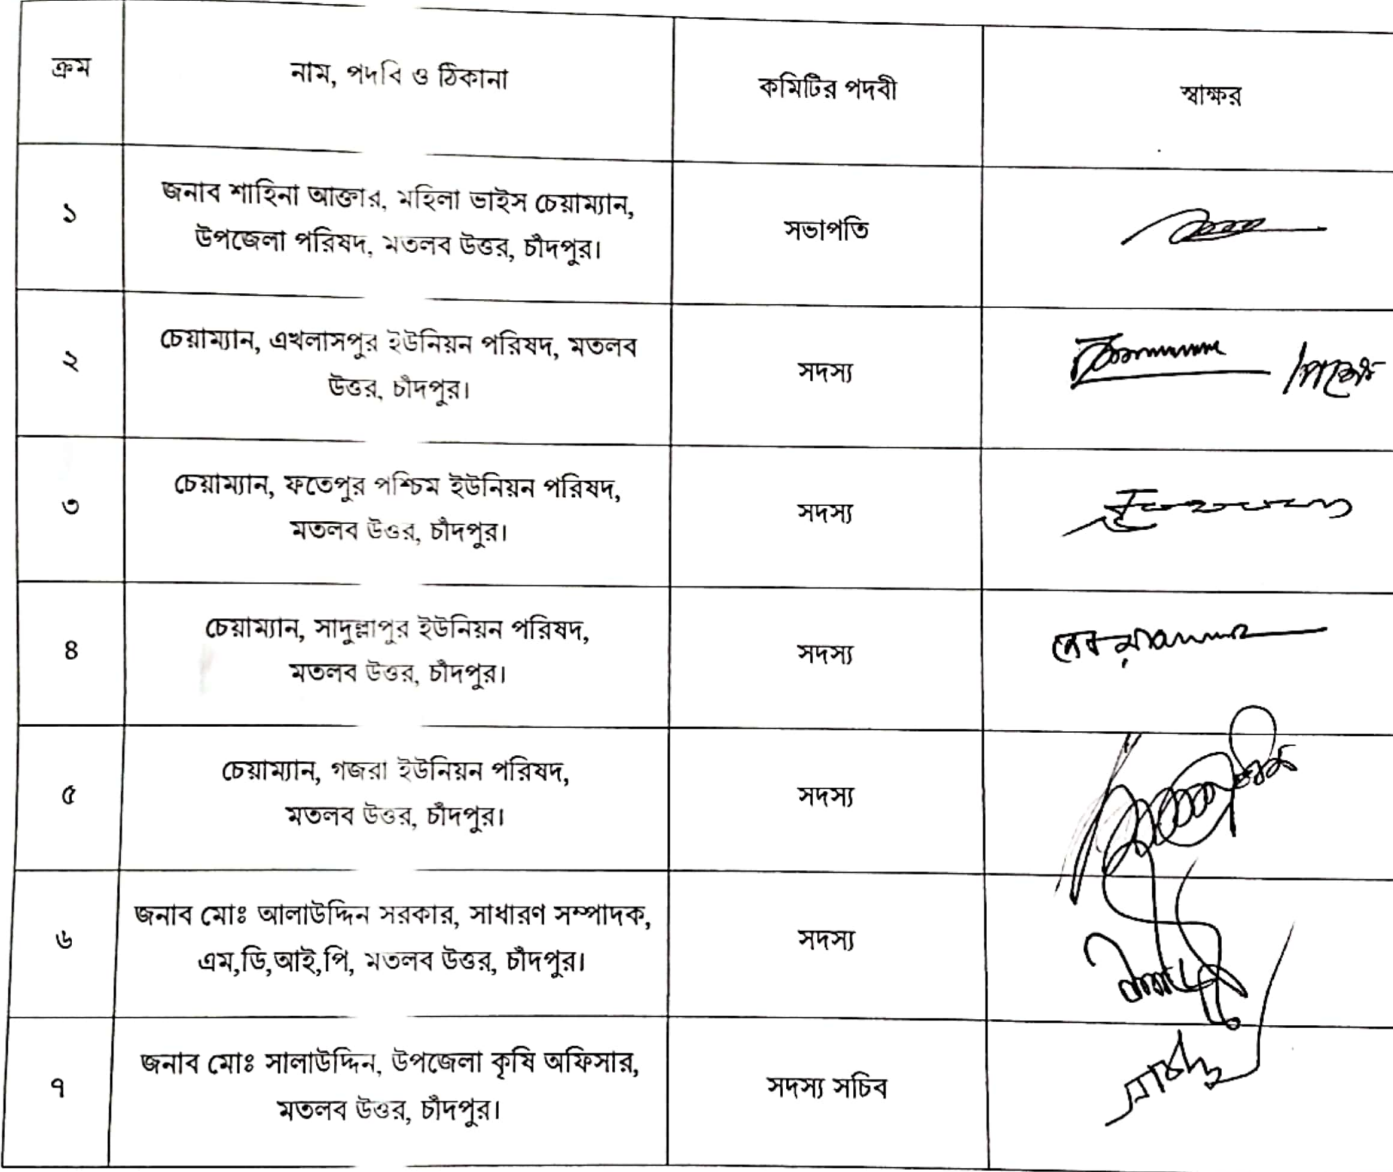 ক্রম
নাম, পদবি ও ঠিকানা
কমিটির পদবী
স্বাক্ষর
১
জনাব শাহিনা আক্তার, মহিলা ভাইস চেয়াম্যান,
উপজেলা পরিষদ, মতলব উত্তর, চাঁদপুর।
সভাপতি
২
চেয়াম্যান, এখলাসপুর ইউনিয়ন পরিষদ, মতলব
উত্তর, চাঁদপুর।
সদস্য
৩
চেয়াম্যান, ফতেপুর পশ্চিম ইউনিয়ন পরিষদ,
মতলব উত্তর, চাঁদপুর।
সদস্য
৪
চেয়াম্যান, সাদুল্লাপুর ইউনিয়ন পরিষদ,
মতলব উত্তর, চাঁদপুর।
সদস্য
৫
চেয়াম্যান, গজরা ইউনিয়ন পরিষদ,
মতলব উত্তর, চাঁদপুর।
সদস্য
৬
জনাব মোঃ আলাউদ্দিন সরকার, সাধারণ সম্পাদক,
এম,ডি,আই,পি, মতলব উত্তর, চাঁদপুর।
সদস্য
৭
জনাব মোঃ সালাউদ্দিন, উপজেলা কৃষি অফিসার,
মতলব উত্তর, চাঁদপুর।
সদস্য সচিব